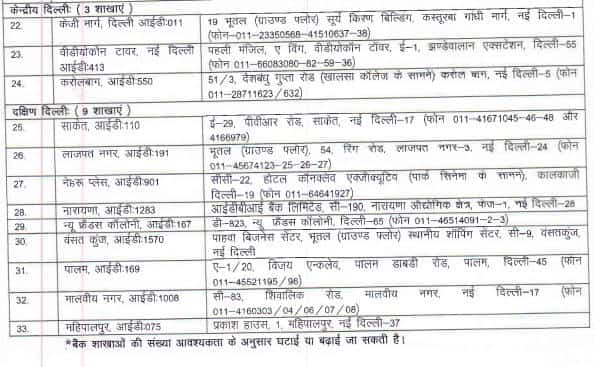 केन्द्रीय दिल्लीः ( 3 शाखाएं )
22. केजी मार्ग, दिल्ली आईडी:011 19 भूतल (ग्राउण्ड फ्लोर) सूर्य किरण बिल्डिंग, कस्तूरबा गांधी मार्ग, नई दिल्ली-1
(फोन-011-23350568-41510637-38)
23. वीडीयोकोन टावर, नई दिल्ली पहली मंजिल, ए विंग, वीडीयोकॉन टॉवर, ई-1, झण्डेवालान एक्सटेंशन, दिल्ली-55
आईडी:413 (फोन 011-66083080-82-59-36)
24. करोलबाग, आईडी:550 51/3, देशबंधु गुप्ता रोड (खालसा कॉलेज के सामने) करोल बाग, नई दिल्ली-5 (फोन
011-28711623/632)
दक्षिण दिल्लीः ( 9 शाखाएं )
25. साकेत, आईडी:110 ई-29, पीवीआर रोड, साकेत, नई दिल्ली-17 (फोन 011-41671045-46-48 और
4166979)
26. लाजपत नगर, आईडी:191 भूतल (ग्राउण्ड फ्लोर), 54, रिंग रोड, लाजपत नगर-3, नई दिल्ली-24 (फोन
011-45674123-25-26-27)
27. नेहरू प्लेस, आईडी:901 सीसी-22, होटल कोनक्लेव एक्जीक्यूटिव (पार्क सिनेमा के सामने), कालकाजी
दिल्ली-19 (फोन 011-64641927)
28. नारायणा, आईडी:1283 आईडीबीआई बैंक लिमिटेड, सी-190, नारायणा औद्योगिक क्षेत्र, फेज-1, नई दिल्ली-28
29. न्यू फ्रैंडस कॉलोनी, आईडी:167 डी-823, न्यू फ्रैंडस कॉलोनी, दिल्ली-65 (फोन 011-46514091-2-3)
30. वंसत कुंज, आईडी:1570 पाहवा बिजनेस सेंटर, भूतल (ग्राउण्ड फ्लोर) स्थानीय शॉपिंग सेंटर, सी-9, वंसतकुंज,
नई दिल्ली
31. पालम, आईडी:169 ए-1/20, विजय एन्कलेव, पालन डाबडी रोड, पालम, दिल्ली-45 (फोन
011-45521195/96)
32. मालवीय नगर, आईडी:1008 सी-83, शिवालिक रोड, मालवीय नगर, नई दिल्ली-17 (फोन
011-4160303/04/06/07/08)
33. महिपालपुर, आईडी:075 प्रकाश हाउस, 1, महिपालपुर, नई दिल्ली-37
*बैंक शाखाओं की संख्या आवश्यकता के अनुसार घटाई या बढ़ाई जा सकती है।